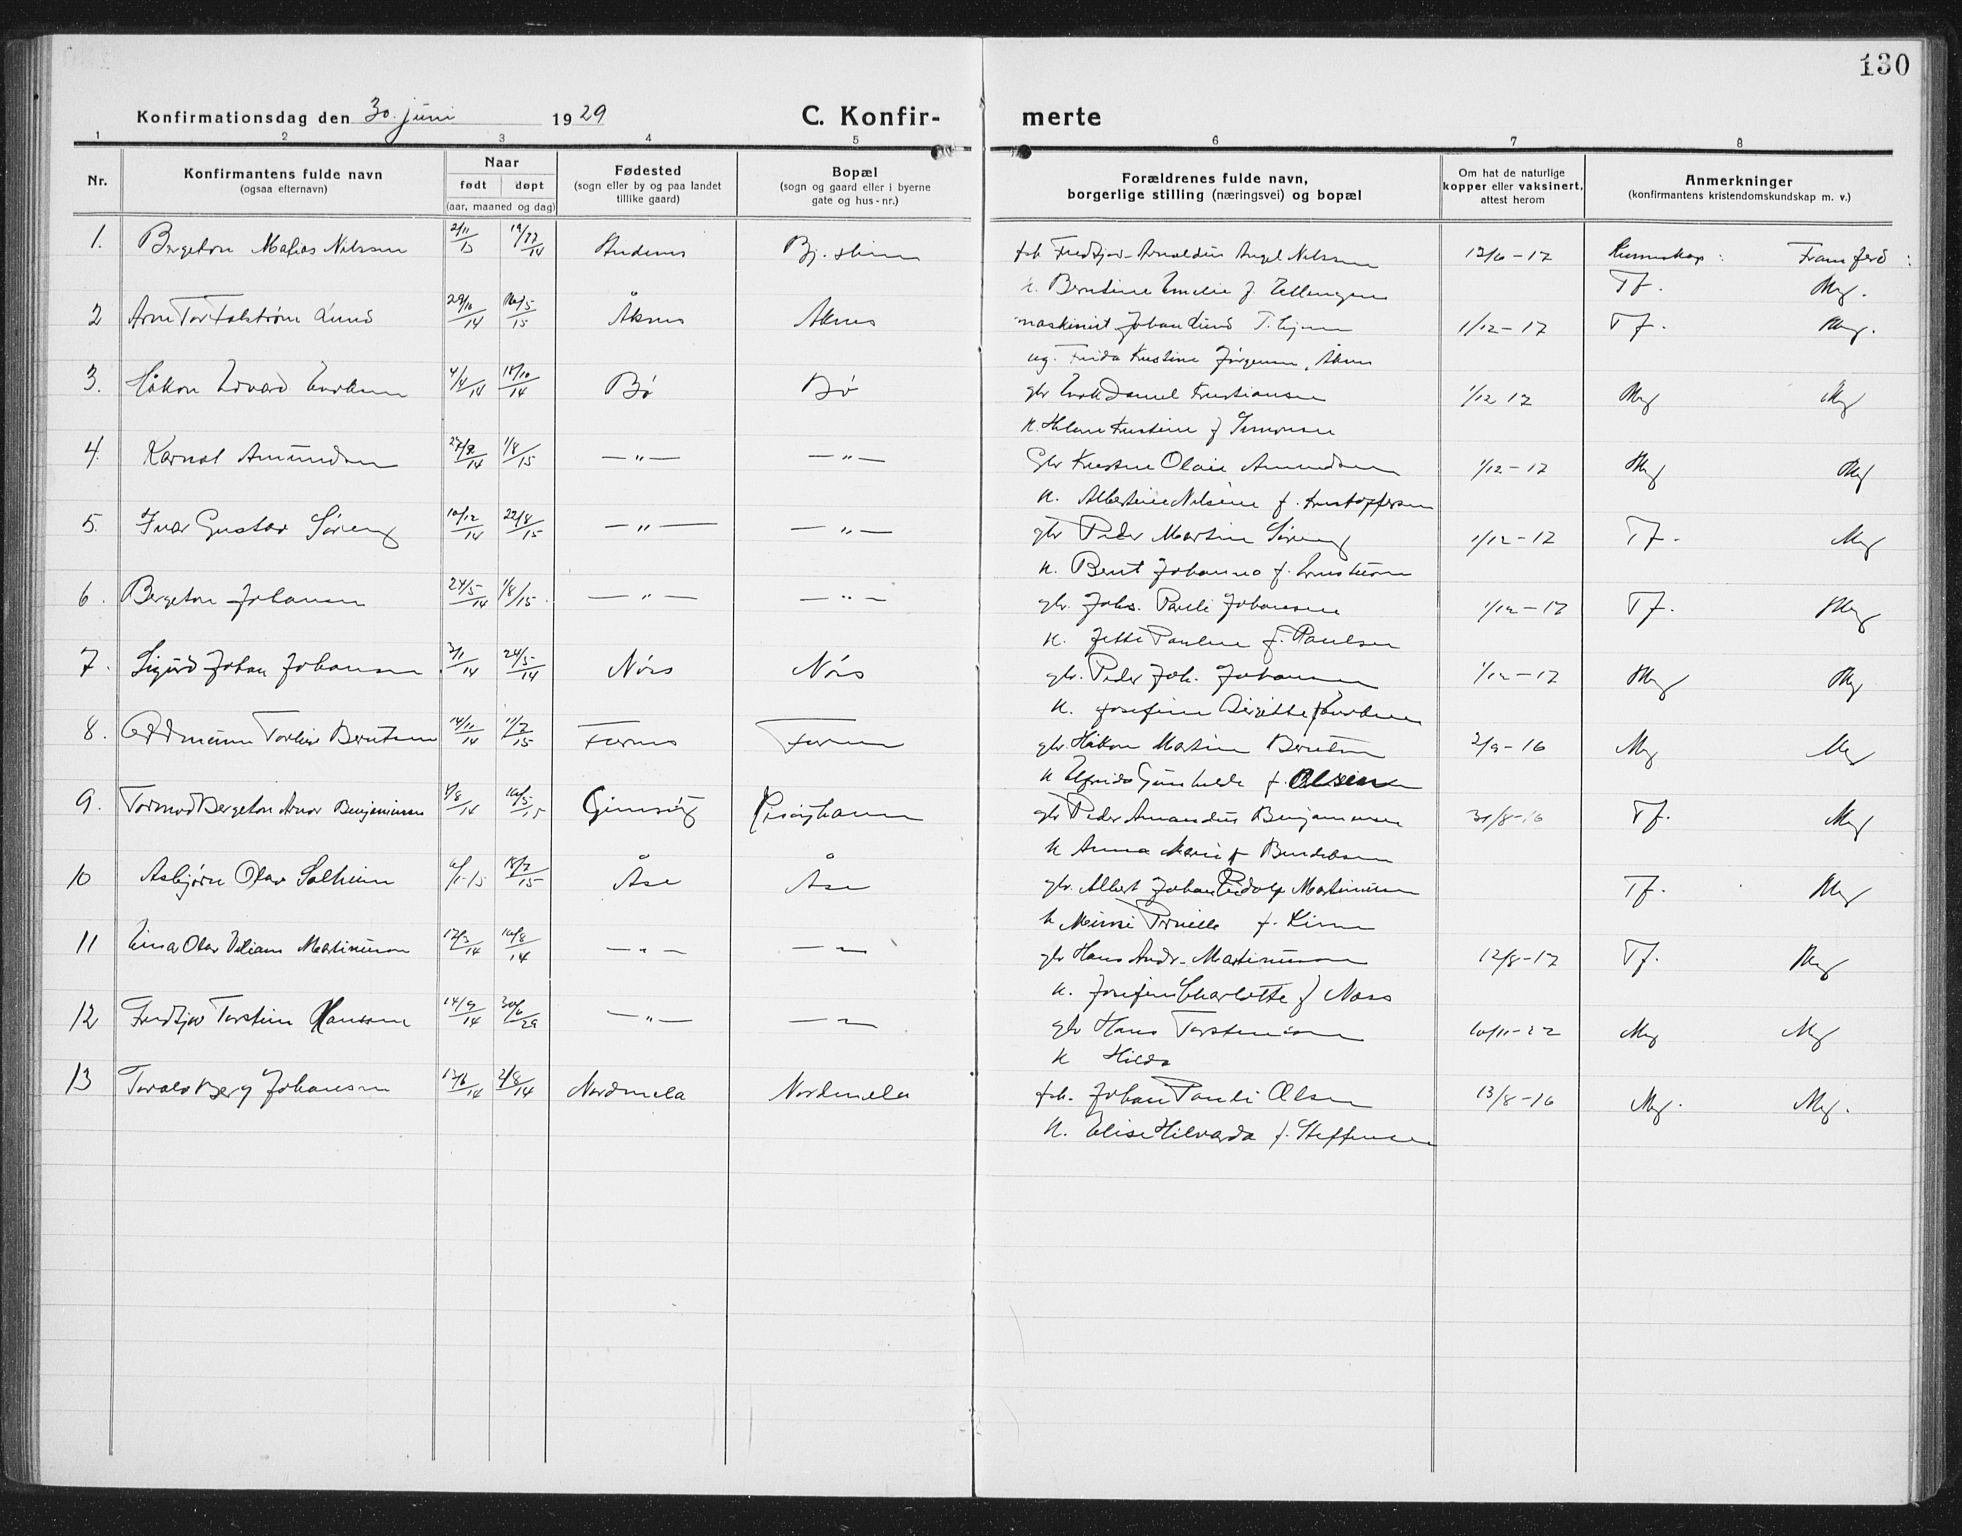 130
Konfirmationsdag den 30. juni 1929
C. Konfir-merte
1 2 3 4 5 6 7 8
Nr.
Konfirmantens fulde navn
(ogsaa efternavn)
Naar
født døpt
(aar, maaned og dag)
Fødested
(sogn eller by og paa landet
tillike gaard)
Bopæl
(sogn og gaard eller i byerne
gate og hus-nr.)
Forældrenes fulde navn,
borgerlige stilling (næringsvei) og bopæl
Om hat de naturlige
kopper eller vaksinert,
attest herom
Anmerkninger
(konfirmantens kristendomskundskap m. v.)
1. Bergeton Mafias Nilssen Andenes fsk Fredtjov Arnoldus Angel Nilssen 12/6-17 Kunnskap: Framferd:
k. Berntine Emelie f. Ellingsen Tf. Mg.
2 Arne Tor Falstrøm Lund 29/10/14 16/5/15 Åknes Åknes maskinist Johan Lund 1/12-17 Tf. Mg.
ug. Frida Kristine Jørgensen, Åknes
3. Håkon Edvard 4/4/14 18/10/14 Bø Bø gbr Daniel Kristiansen 1/12 17 Mg Mg
k. Helene Kristine f Simonsen
4. Karnot Amundsen 1/8/15 —"— —"— Gbr Amundsen 1/12-17 Mg Mg
k. Albertine Nilsine f. Kristoffersen
5. Ivar Gustav Søreng 10/12/14 22/8/15 —"— —"— gbr Peder Martin Søreng 1/12-17 Tf. Mg
k. Berit Johanna f.
6. Bergeton Johansen 24/5/14 1/8/15. —"— —"— gbr. Johs. Pauli Johansen 1/12-17 Tf. Mg
k. Jette Pauline f. Paulsen
7. Sigurd Johan Johansen 3/1/14 24/5/14 Nöss Nöss gbr. Peder Joh. Johansen 1/12-17 Mg Mg
k. Josefine Birgitte f
8. Torleif Berntsen 14/11/14 11/7/15 gbr. Håkon Martin Berntsen 2/9-16 Mg Mg
k Elfrida Gunhilde f. Olsen
9. Tormod Bergeton Arnor Benjaminsen 4/8/14 16/5/15 Gimsöy gbr Peder Amandus Benjaminsen 31/8-16 Tf. Mg
k Anna Marie f Bendiksen
10 Asbjørn Olav Solheim 6/1-15 18/7/15 Åse Åse gbr. Albert Johan Martinussen Tf. Mg
k f. Kinn
11 Einar Olav Viliam Martinusson 17/3/14 16/8/14 —"— —"— gbr Hans Andr. Martinusson 12/8-17 Tf. Mg
k. Josefine Charlotte f Nöss
12 Fredtjov Torstein Hansen 14/9/14 30/6/29 —"— —"— gbr Hans Torstensson 10/11-22 Mg Mg
k Hilda
13 Toralv Berg Johansen 13/6/14 2/8/14 Nordmela Nordmela fsk. Johan Pauli Olsen 13/8-16 Mg. Mg.
k. Elise Hilvarda f. Steffensen